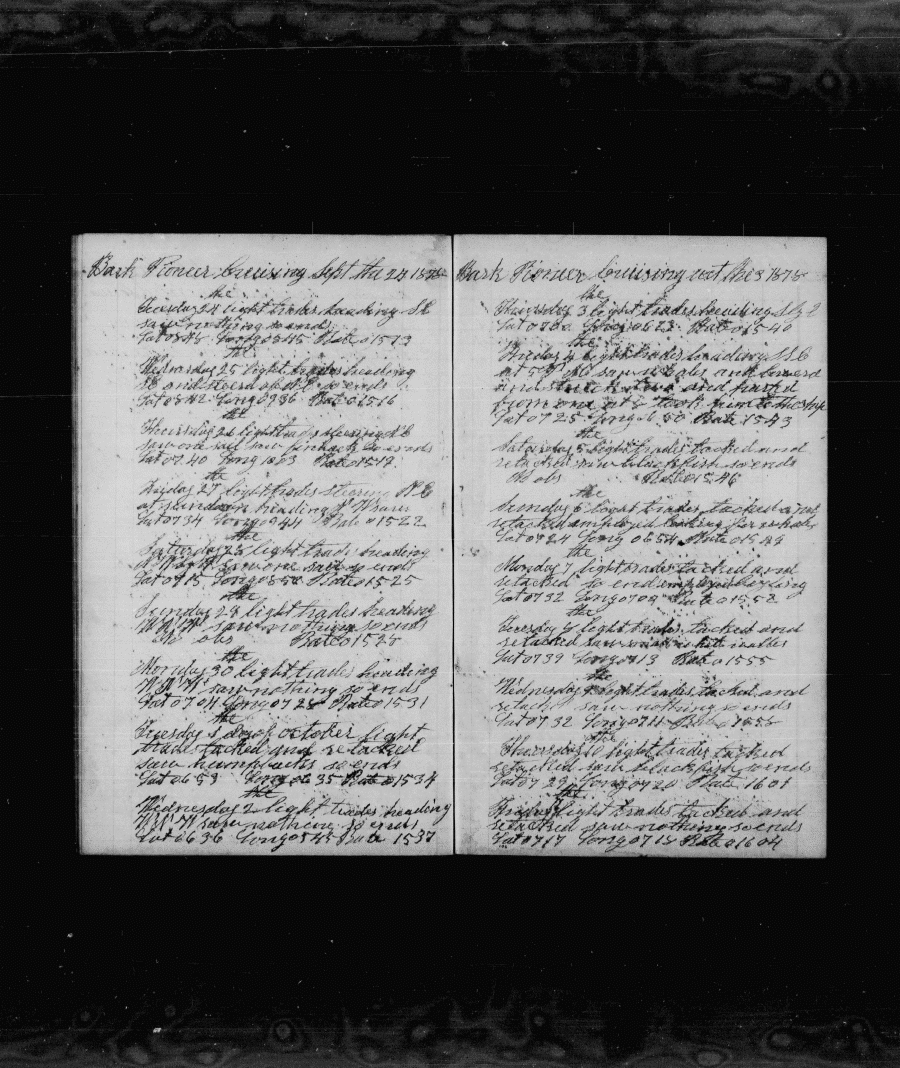 Bark Pioneer Cruising Sept the 24 1878
the
Tuesday 24 light trades heading S E
saw nothing so ends
Lat 0845 Long 0845 Rate 01513
the
Wednesday 25 light trades heading
S E and steerd off N E so ends
Lat 0842 Long 0936 Rate 01516
the
Thursday 26 light trades steering N E
saw one sail saw finback so ends
Lat 0740 Long 1003 Rate 01519
the
Friday 27 light trades steering N E
at sundown heading N W
Lat 0734 Long 0944 Rate 01522
the
Saturday 28 light trades heading
saw one sail so ends
Lat 0715 Long 0850 Rate 01525
the
Sunday 29 light trades heading
W N W saw nothing so ends
No obs Rate 01528
the
Monday 30 light trades heading
W N W saw nothing so ends
Lat 0704 Long 0728 Rate 01531
the
Tuesday 1 day of october light
trades tacked and retacked
saw humpbacks so ends
Lat 0653 Long 0635 Rate 01534
the
Wednesday 2 light trades heading
W N W saw nothing so ends
Lat 0636 Long 0545 Rate 1537
Bark Pioneer Cruising oct the 3 1878
the
Thursday 3 light trades heading
Lat 0700 Long 0623 Rate 01540
the
Friday 4 light trades heading S S E
at saw whales and lowerd
and struck two and parted
from one at took him to the ship
Lat 0725 Long 0650 Rate 1543
the
Saturday 5 light trades tacked and
retacked saw blackfish so ends
No obs Rate 01546
the
Sunday 6 light trades tacked and
retacked employed looking for whales
Lat 0724 Long 0654 Rate 01549
the
Monday 7 light trades tacked and
retacked so ends employed boiling
Lat 0732 Long 0704 Rate 01552
the
Tuesday 8 light trades tacked and
retacked saw
Lat 0739 Long 0713 Rate 01555
the
Wednesday 9 light trades tacked and
retacked saw nothing so ends
Lat 0732 Long 0711 Rate 1558
the
Thursday 10 light trades tacked
retacked saw blackfish so ends
Lat 0729 Long 0720 Rate 1601
the
Friday light trades tacked and
retacked saw nothing so ends
Lat 0717 Long 0715 Rate 01604